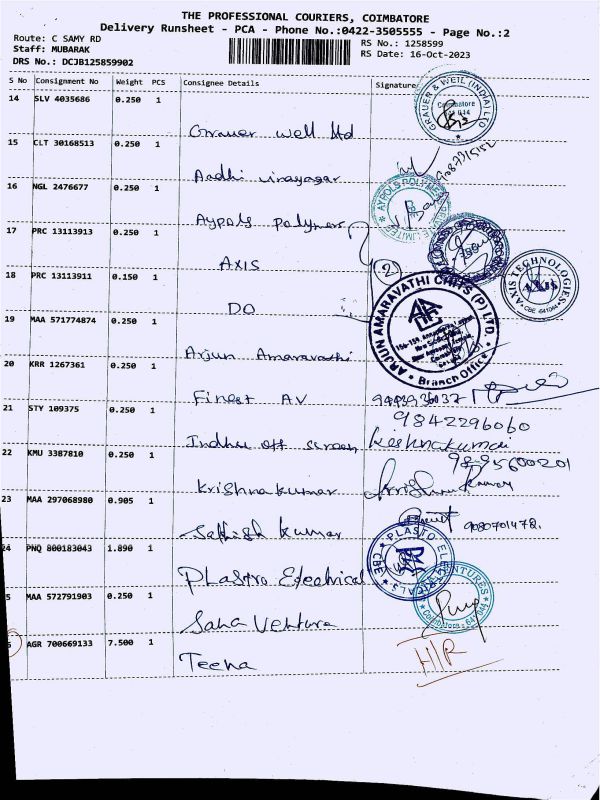 THE PROFESSIONAL COURIERS, COIMBATORE
Delivery Runsheet - PCA - Phone No.:0422-3505555 - Page No.:2
Route: C SAMY RD
RS No.: 1258599
Staff: MUBARAK
RS Date: 16-Oct-2023
DRS No.: DCJB125859902
S No Consignment No Weight PCS Consignee Details Signature
14 SLV 4035686 0.250 1
GRAUER & WEIL (INDIA) LTD
Coimbatore
Grauer well ltd
15 CLT 30168513 0.250 1
Aadhi vinayagar
16 NGL 2476677 0.250 1
Aypols polymers
17 PRC 13113913 0.250 1
AXIS
18 PRC 13113911 0.150 1
(2)
AXIS TECHNOLOGIES
AXIS
CBE -641044
DO
19 MAA 571774874 0.250 1
ARJUN AMARAVATHI CHITS (P) LTD.
Branch Office
Arjun Amaravathi
20 KRR 1267361 0.250 1
Finest AV
21 STY 109375 0.250 1
9842296060
Indhu off screen
22 KMU 3387810 0.250 1
Krishnakumar
23 MAA 297068980 0.905 1
Sathish kumar
9080701472.
24 PNQ 800183043 1.890 1
PLASTO ELECTRICALS
CBE
Plastro Electrical
5 MAA 572791903 0.250 1
Sana Ventura
AGR 700669133 7.500 1
Teena
H/R